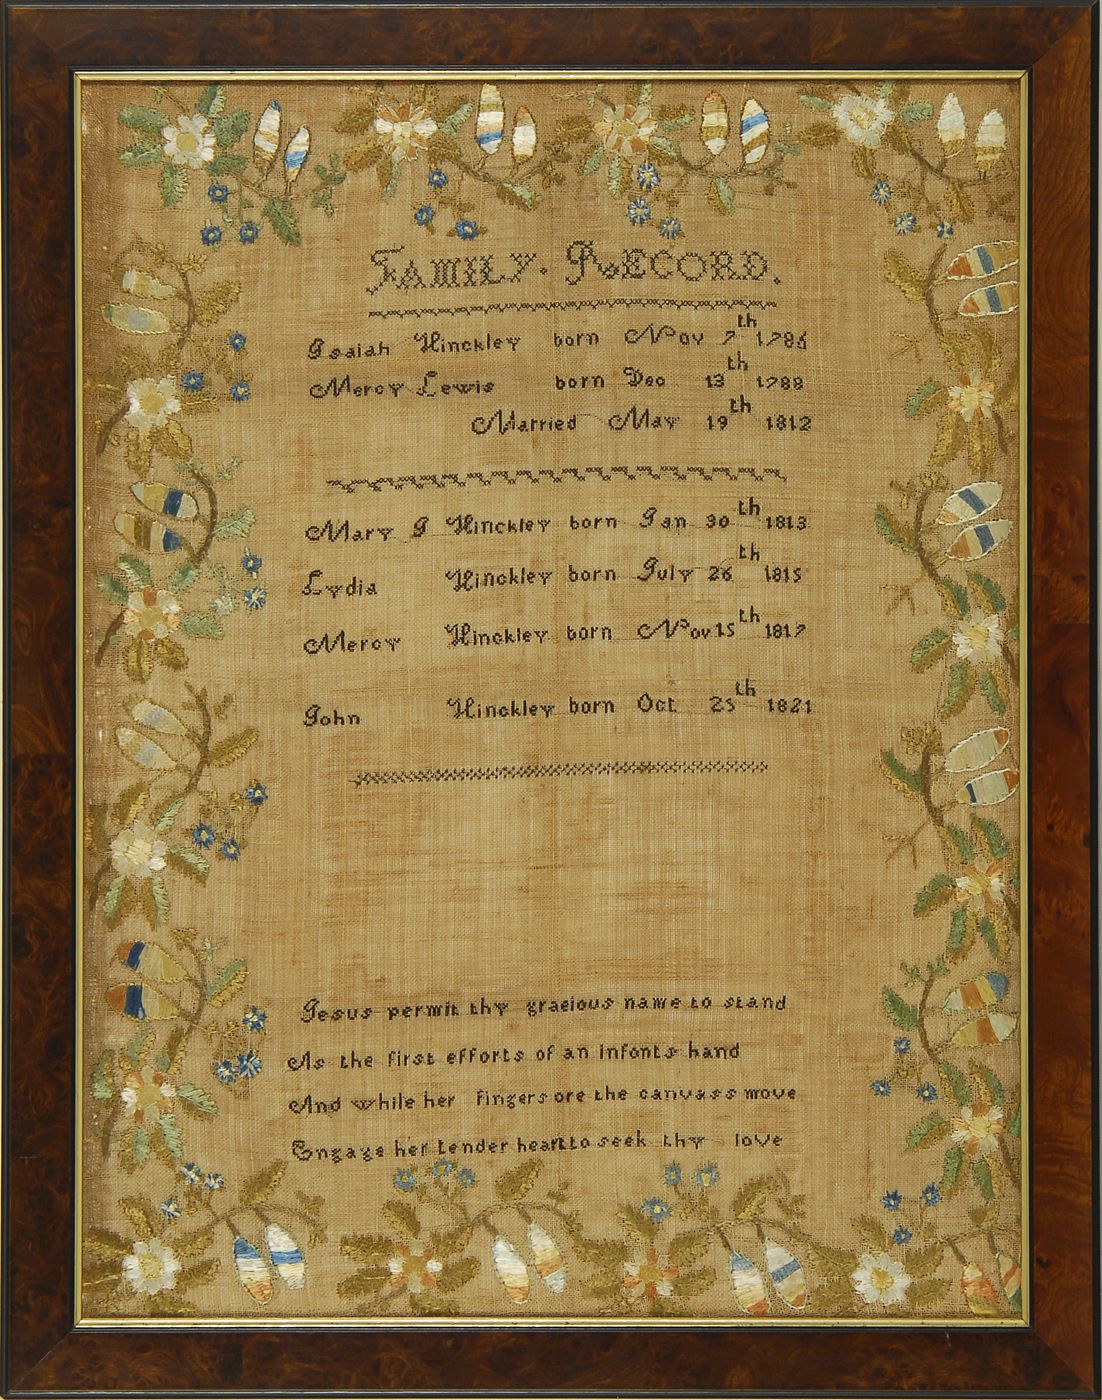 FAMILY. RECORD.
Isaiah Hinckley born Nov 7th 1786
Mercy Lewis born Dec 13th 1788
Married May 19th 1812
Mary J Hinckley born Jan 30th 1813
Lydia Hinckley born July 26th 1815
Mercy Hinckley born Nov 15th 1817
John Hinckley born Oct 25th 1821
Jesus permit thy gracious name to stand
As the first efforts of an infonts hand
And while her fingers ore the canvass move
Engage her tender heart to seek thy love